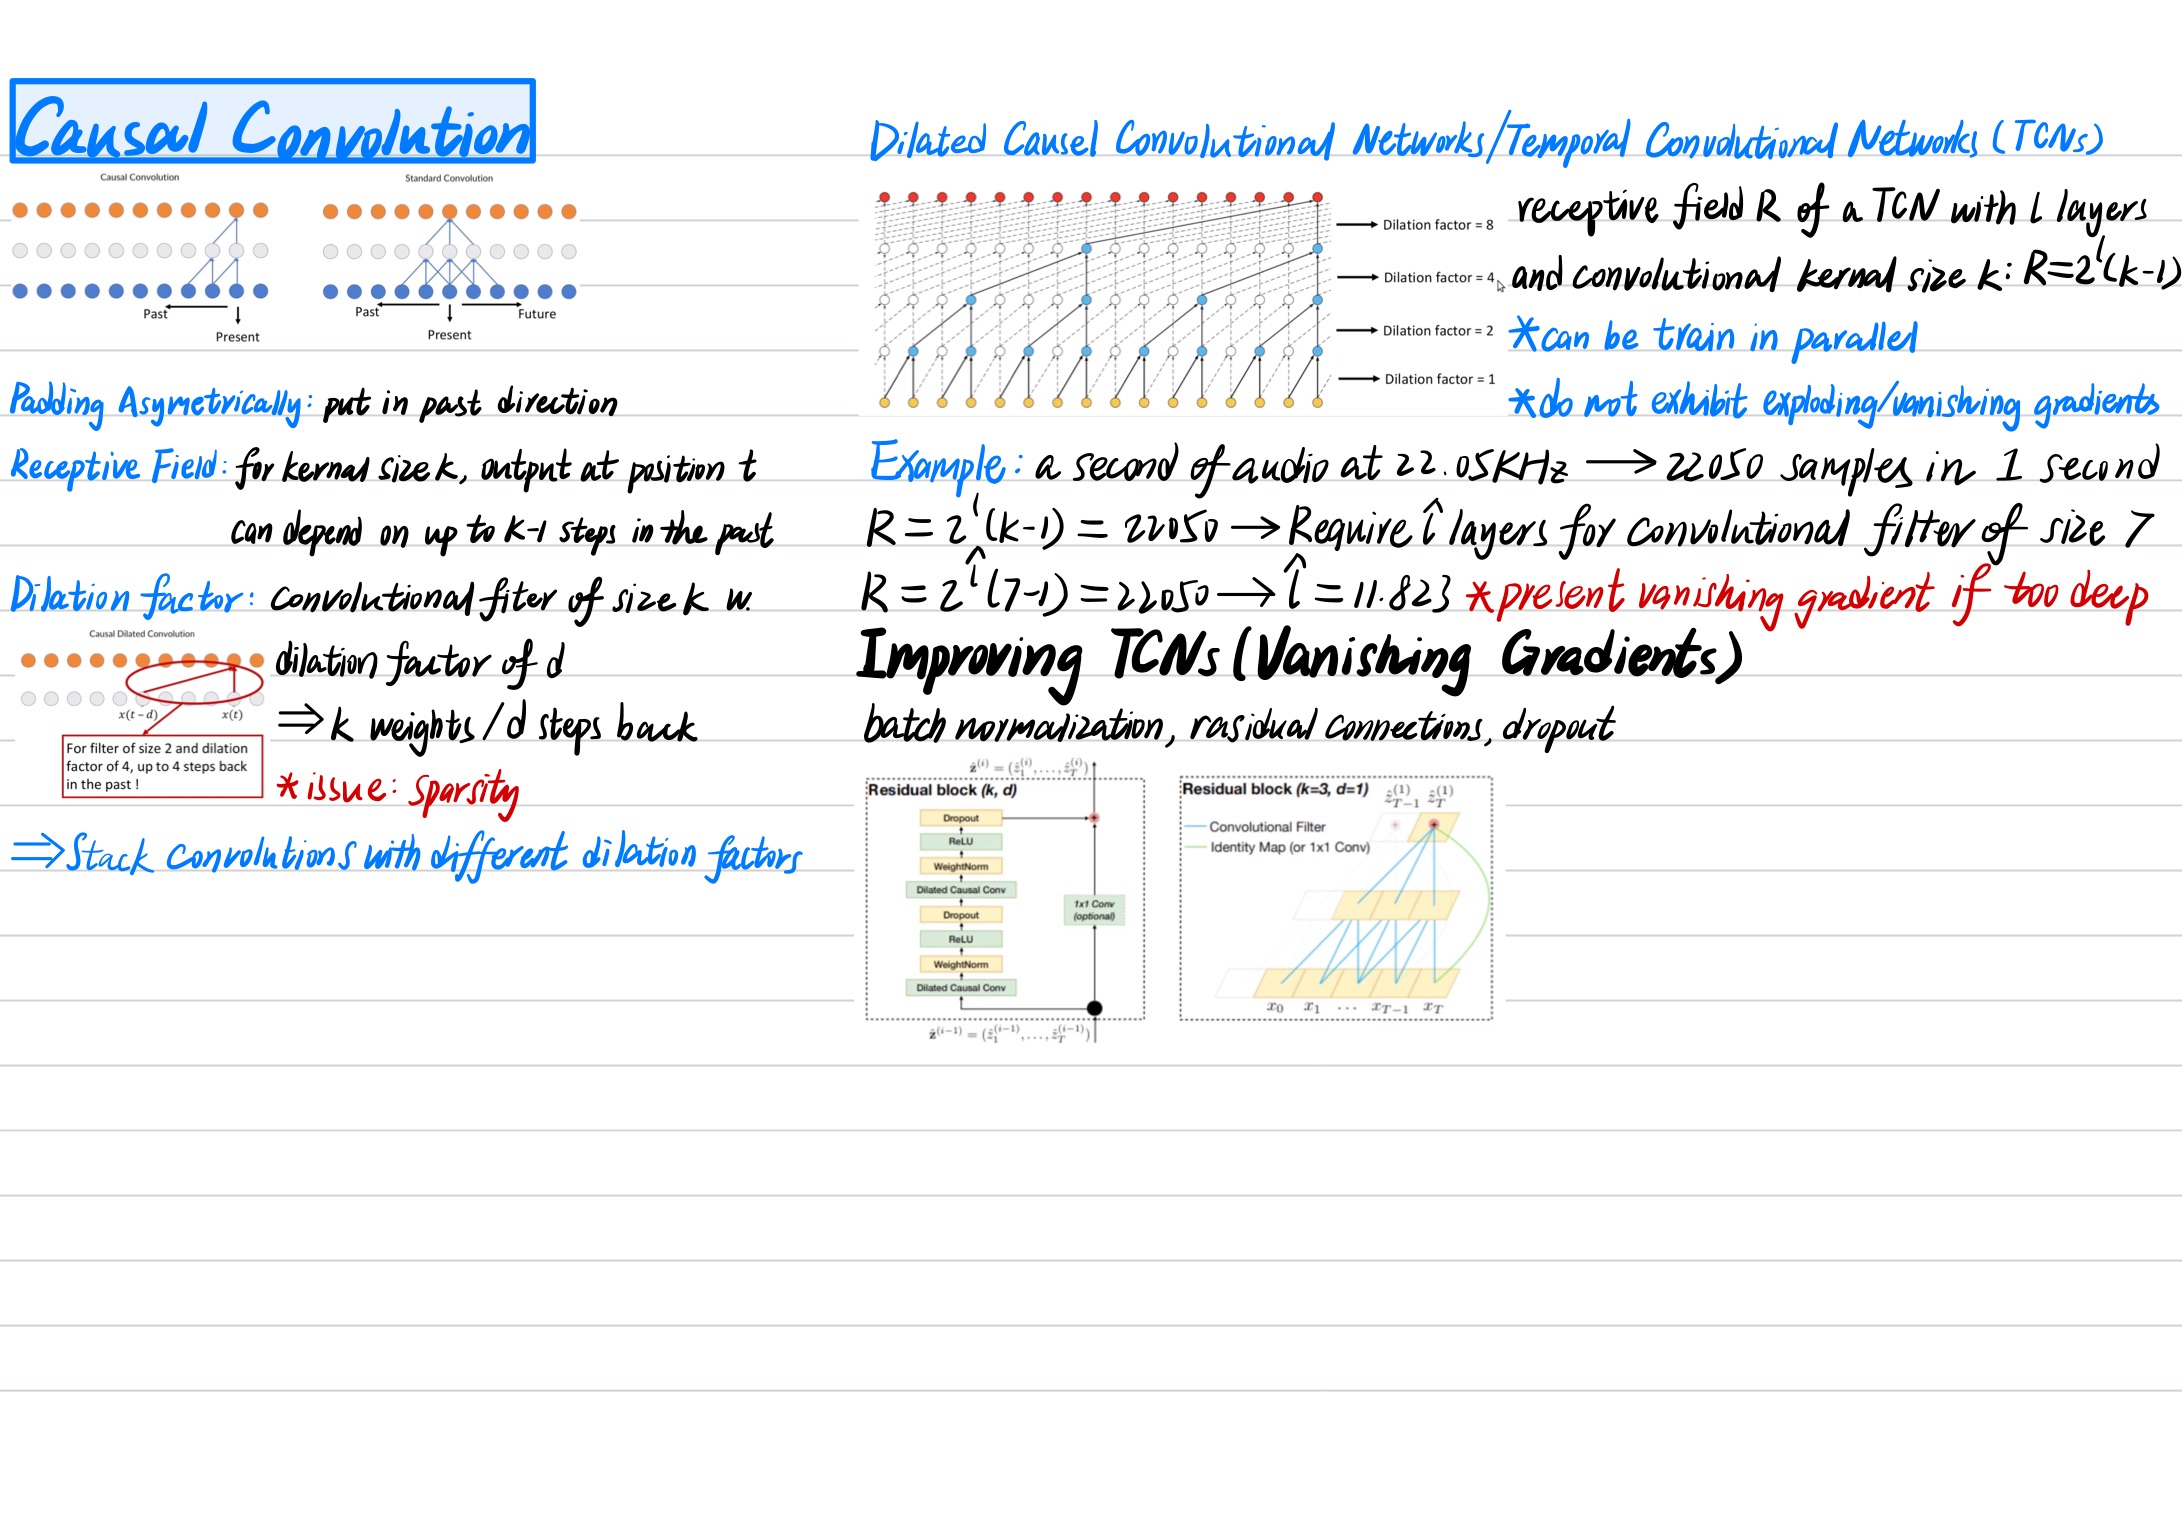 Causal Convolution
Causal Convolution
Standard Convolution
Past
Present
Past
Present
Future
Padding Asymetrically: put in past direction
Receptive Field: for kernal size k, output at position t
can depend on up to k-1 steps in the past
Dilation factor: convolutional fiter of size k w.
Causal Dilated Convolution
dilation factor of d
x(t − d)
x(t)
⇒ k weights / d steps back
For filter of size 2 and dilation
factor of 4, up to 4 steps back
in the past !
*issue: sparsity
⇒ Stack convolutions with different dilation factors
Dilated Causel Convolutional Networks/Temporal Convolutional Networks (TCNs)
Dilation factor = 8
Dilation factor = 4
Dilation factor = 2
Dilation factor = 1
receptive field R of a TCN with l layers
and convolutional kernal size k: R=2^l(k-1)
*can be train in parallel
*do not exhibit exploding/vanishing gradients
Example: a second of audio at 22.05KHz → 22050 samples in 1 second
R = 2^l(k-1) = 22050 → Require l̂ layers for convolutional filter of size 7
R = 2^l̂(7-1) = 22050 → l̂ = 11.823 *present vanishing gradient if too deep
Improving TCNs (Vanishing Gradients)
batch normalization, rasidual connections, dropout
ẑ^(i) = (ẑ_1^(i), . . . , ẑ_T^(i))
Residual block (k, d)
Dropout
ReLU
WeightNorm
Dilated Causal Conv
Dropout
ReLU
WeightNorm
Dilated Causal Conv
1x1 Conv
(optional)
+
ẑ^(i−1) = (ẑ_1^(i−1), . . . , ẑ_T^(i−1))
Residual block (k=3, d=1)
ẑ_{T−1}^(1) ẑ_T^(1)
Convolutional Filter
Identity Map (or 1x1 Conv)
+ +
x_0 x_1 . . . x_{T−1} x_T